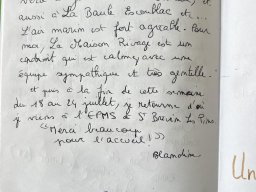 aussi à La Baule Escoublac etc...
L'air marin est fort agréable. Pour
moi, La Maison Rivage est un
endroit qui est calme, avec une
équipe sympathique et très gentille.
et puis à la fin de cette semaine
du 18 au 24 juillet, je retourne d'où
je viens à l'EPMS de St Brévin Les Pins
"Merci beaucoup
pour l'accueil!"
Blandine
Un